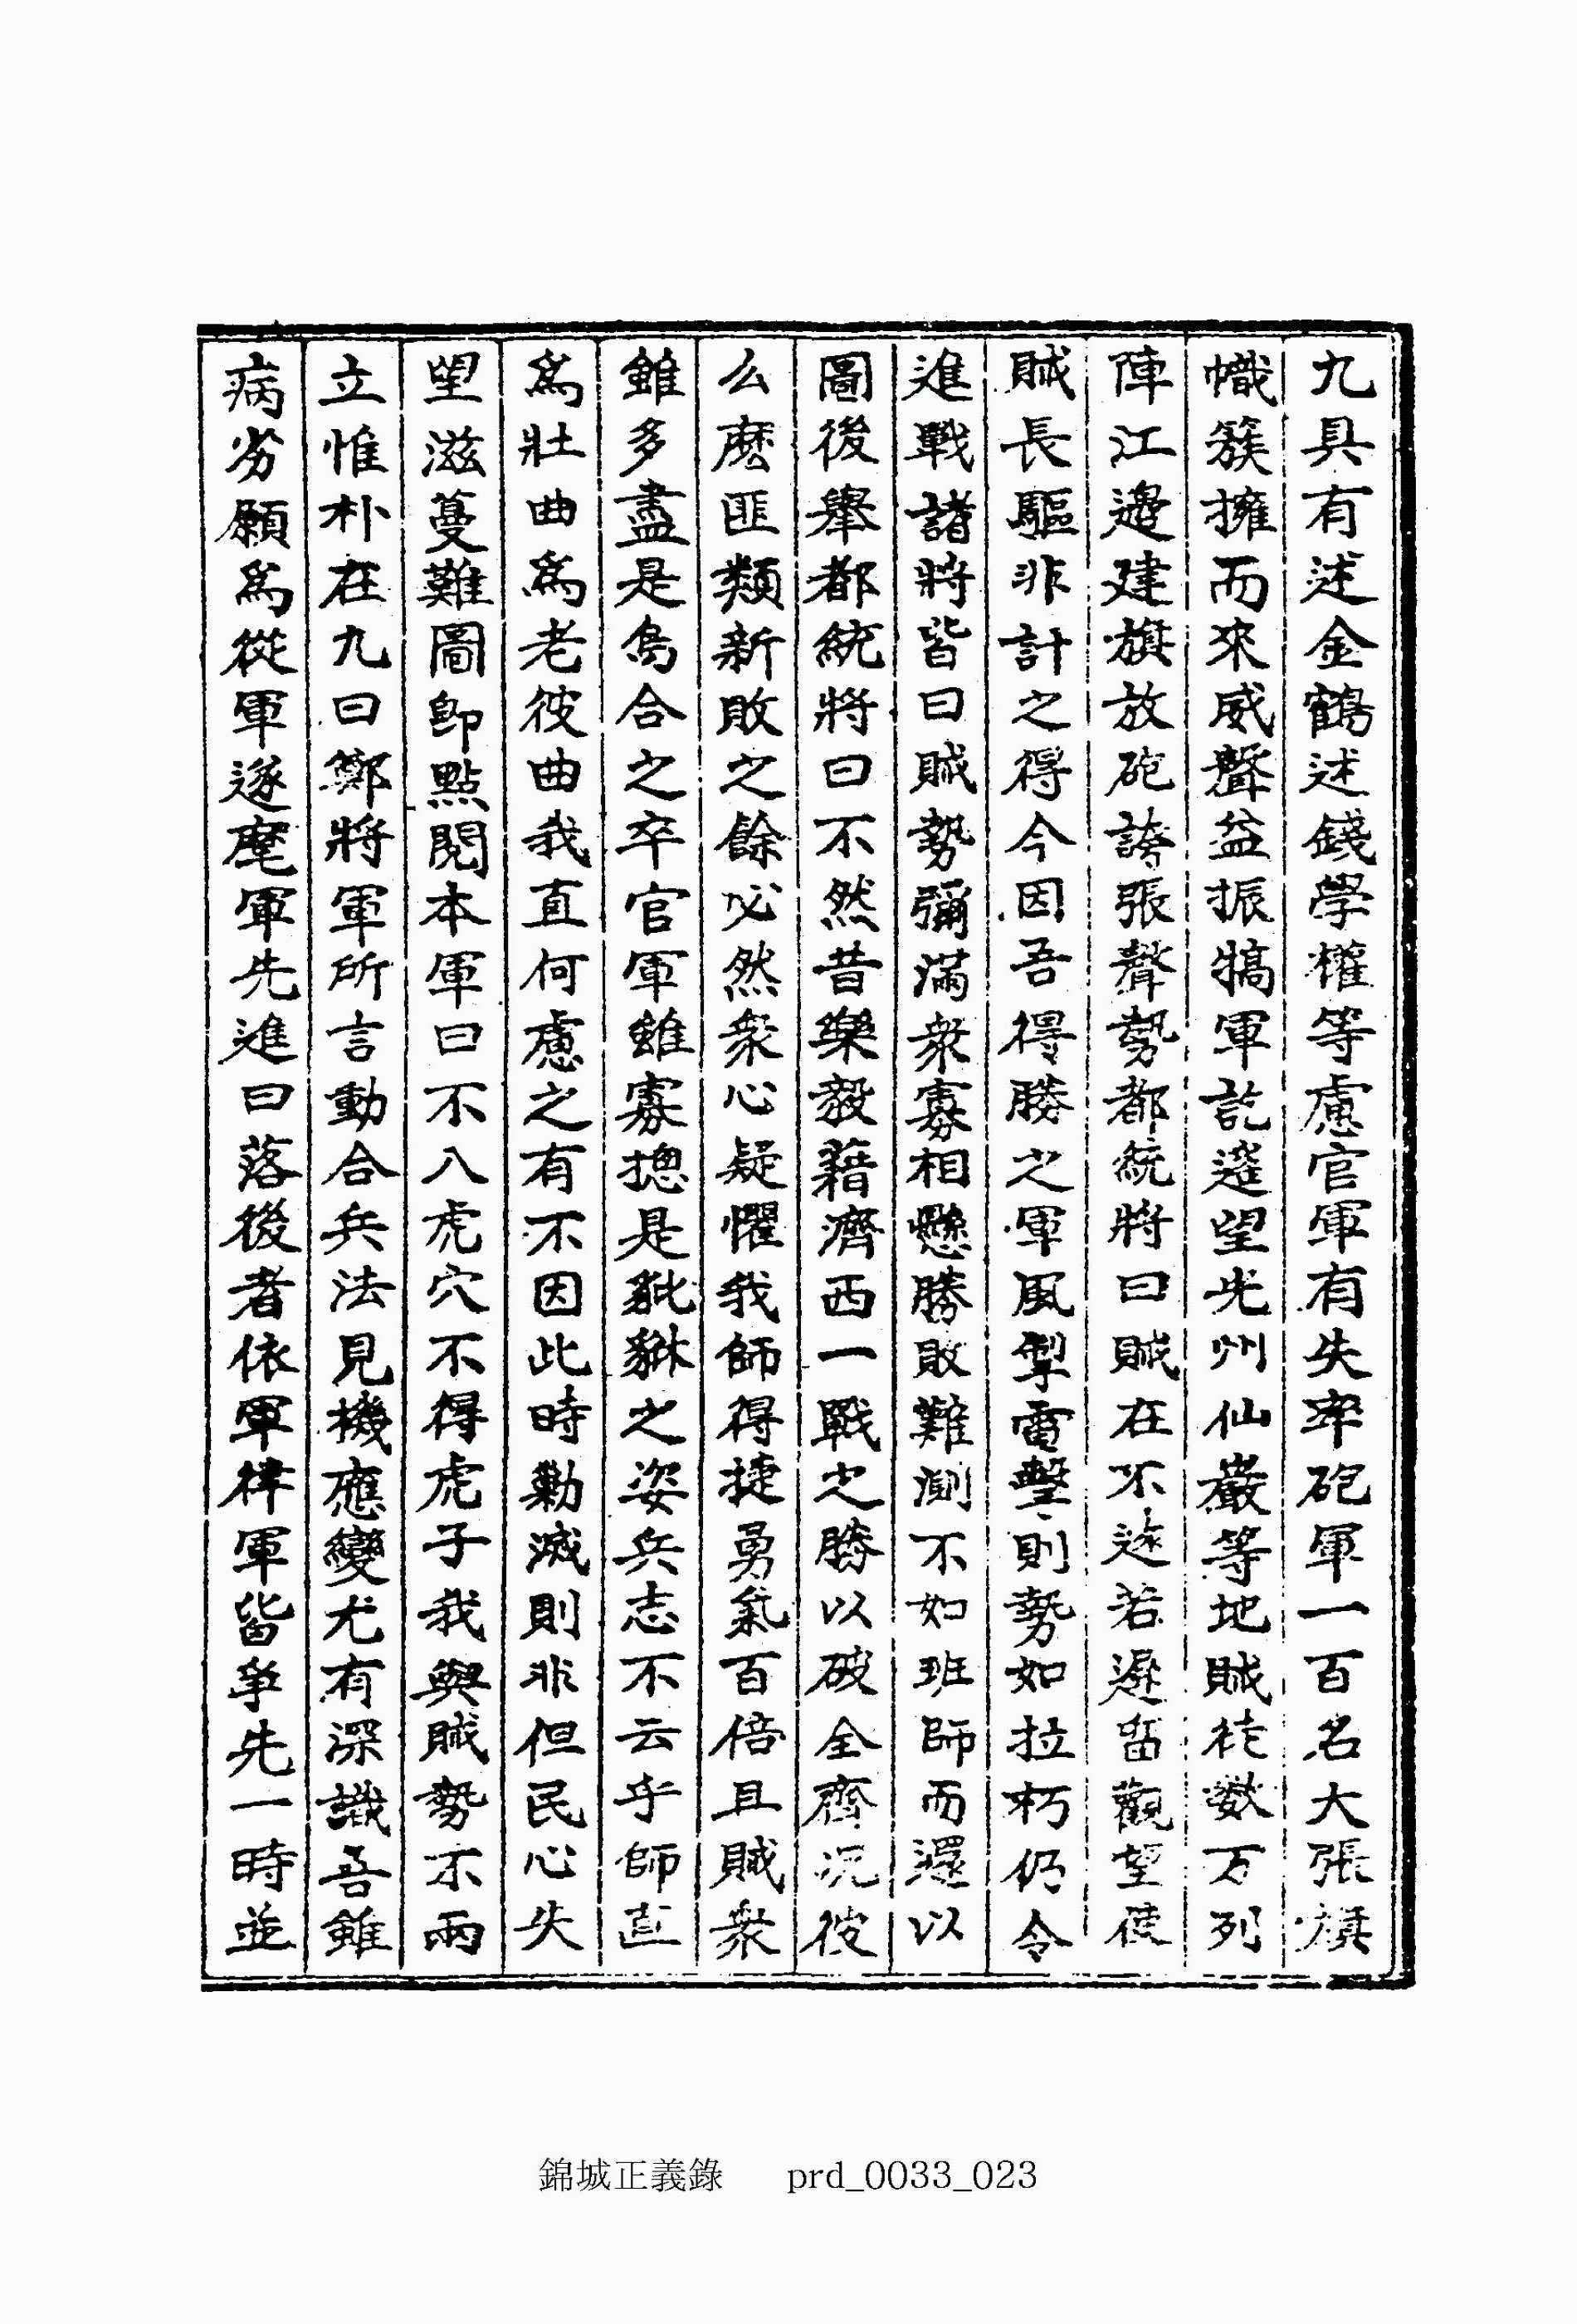 九具有述金鶴述錢學權等慮官軍有失率砲軍一百名大張旗
幟簇擁而來威聲益振犒軍訖遙望光州仙巖等地賊徒數万列
陣江邊建旗放砲誇張聲勢都統將曰賊在不遠若遲留觀望使
賊長驅非計之得今因吾得勝之軍風掣電擊則勢如拉朽仍令
進戰諸將皆曰賊勢彌滿衆寡相懸勝敗難測不如班師而還以
圖後擧都統將曰不然昔樂毅藉濟西一戰之勝以破全齊况彼
么麽匪類新敗之餘必然衆心疑懼我師得捷勇氣百倍且賊衆
雖多盡是烏合之卒官軍雖寡摠是豼貅之姿兵志不云乎師直
爲壯曲爲老彼曲我直何慮之有不因此時勦滅則非但民心失
望滋蔓難圖卽點閱本軍曰不入虎穴不得虎子我與賊勢不兩
立惟朴在九曰鄭將軍所言動合兵法見機應變尤有深識吾雖
病劣願爲從軍遂麾軍先進曰落後者依軍律軍皆爭先一時並
錦城正義錄 prd_0033_023